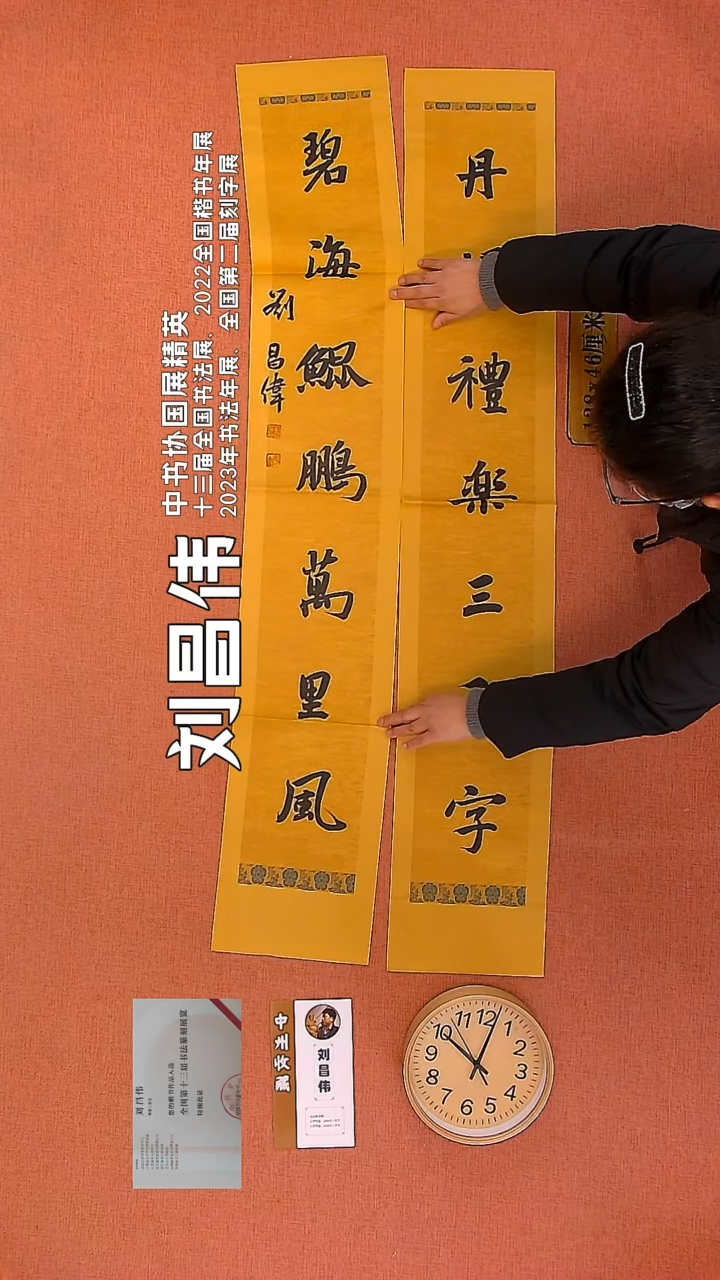 丹
禮楽三
字
碧海鯤鵬萬里風
劉昌偉
刘昌伟
中书协国展精英
十三届全国书法展、2022全国楷书年展
2023年书法年展、全国第二届刻字展
138x46厘米
刘昌伟
全国第十三届书法篆刻展览
特颁此证
中州收藏
刘昌伟
12 1 2 3 4 5 6 7 8 9 10 11